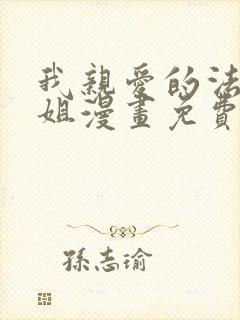 我親愛的法
姐漫畫免費
孫志瑜